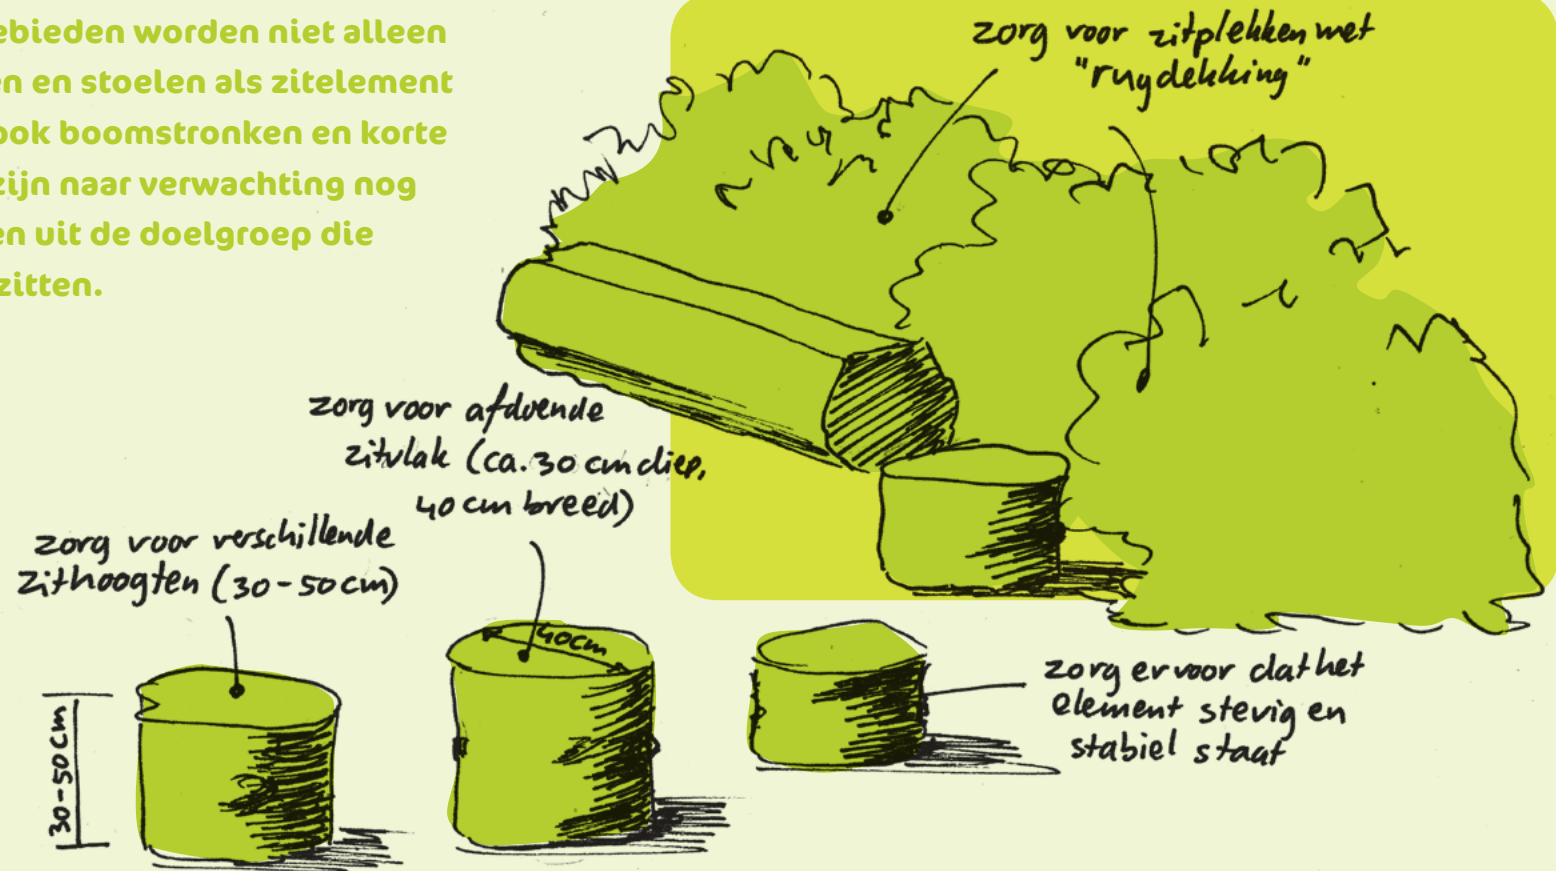 ebieden worden niet alleen
en en stoelen als zitelement
ook boomstronken en korte
zijn naar verwachting nog
en uit de doelgroep die
zitten.
zorg voor zitplekken met
"rugdekking"
zorg voor afdoende
zitvlak (ca. 30 cm diep,
40 cm breed)
zorg voor verschillende
zithoogten (30-50 cm)
40cm
30-50cm
zorg ervoor dat het
element stevig en
stabiel staat